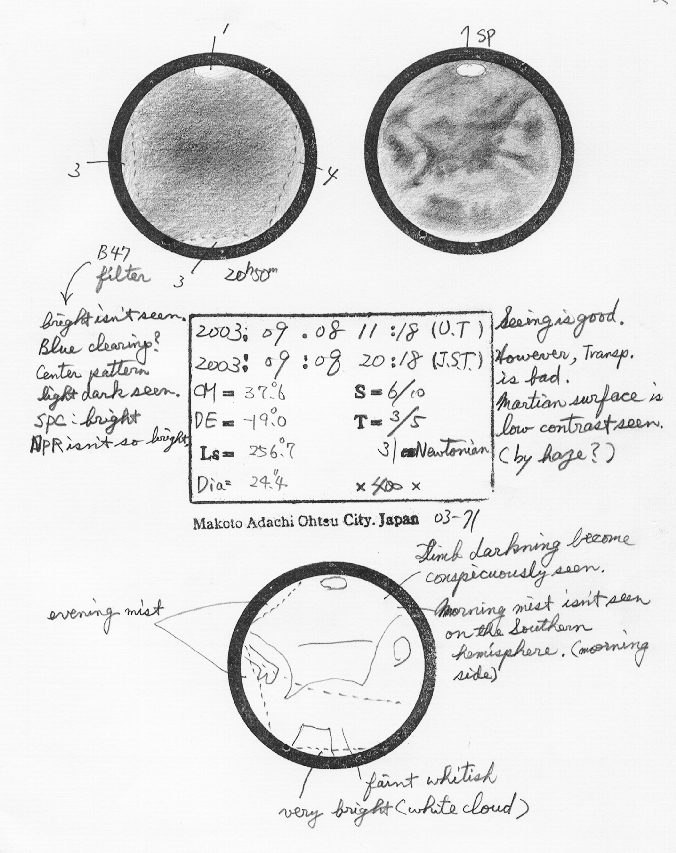 1
SP
3
4
3
20h50m
B47
filter
bright isn't seen.
Blue clearing?
Center pattern
light dark seen.
SPC: bright
NPR isn't so bright
2003: 09 . 08 11 :18 (U.T)
2003: 09 : 08 20 :18 (J.S.T)
CM = 37°.6
S = 6/10
DE = -19°.0
T = 3/5
Ls = 256°.7
31 cm Newtonian
Dia = 24".4
× 400 ×
Seeing is good.
However, Transp.
is bad.
Martian surface is
low contrast seen.
(by haze?)
Makoto Adachi Ohtsu City. Japan 03-71
Limb darkning become
conspecuously seen.
evening mist
Morning mist isn't seen
on the Southern
hemisphere. (moorning
side)
faint whitish
very bright (white cloud)